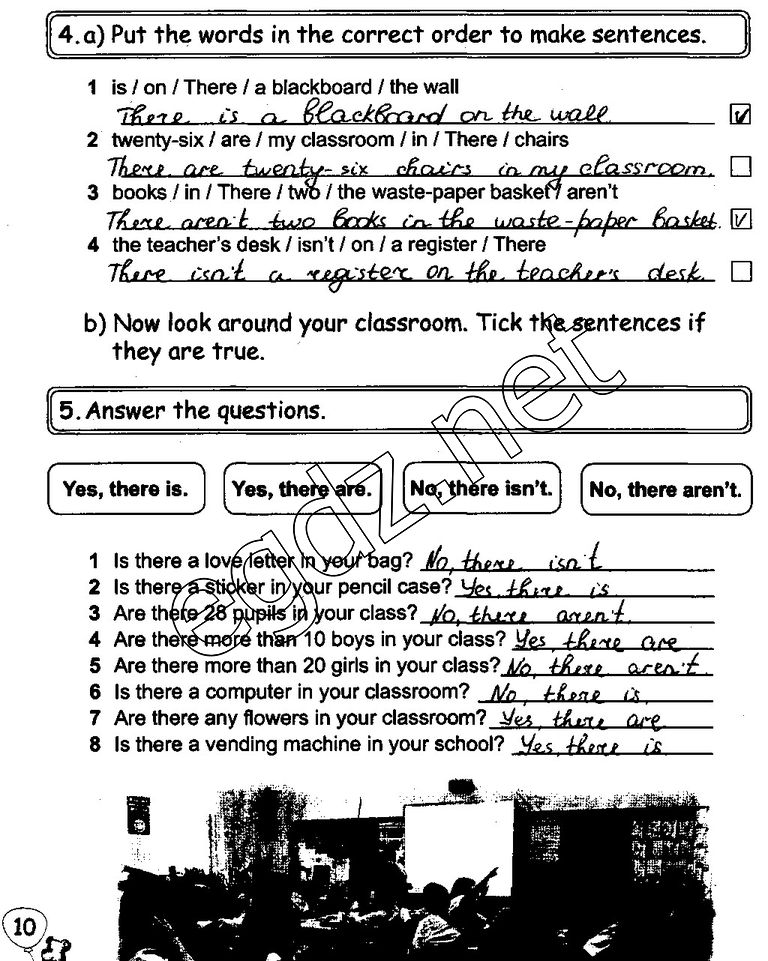 4. a) Put the words in the correct order to make sentences.
1 is / on / There / a blackboard / the wall
There is a blackboard on the wall.
2 twenty-six / are / my classroom / in / There / chairs
There are twenty-six chairs in my classroom.
3 books / in / There / two / the waste-paper basket / aren't
There aren't two books in the waste-paper basket.
4 the teacher's desk / isn't / on / a register / There
There isn't a register on the teacher's desk.
b) Now look around your classroom. Tick the sentences if
they are true.
5. Answer the questions.
Yes, there is. Yes, there are. No, there isn't. No, there aren't.
1 Is there a love letter in your bag? No, there isn't
2 Is there a sticker in your pencil case? Yes, there is
3 Are there 28 pupils in your class? No, there aren't.
4 Are there more than 10 boys in your class? Yes, there are
5 Are there more than 20 girls in your class? No, there aren't.
6 Is there a computer in your classroom? No, there is.
7 Are there any flowers in your classroom? Yes, there are
8 Is there a vending machine in your school? Yes, there is
egdz.net
10